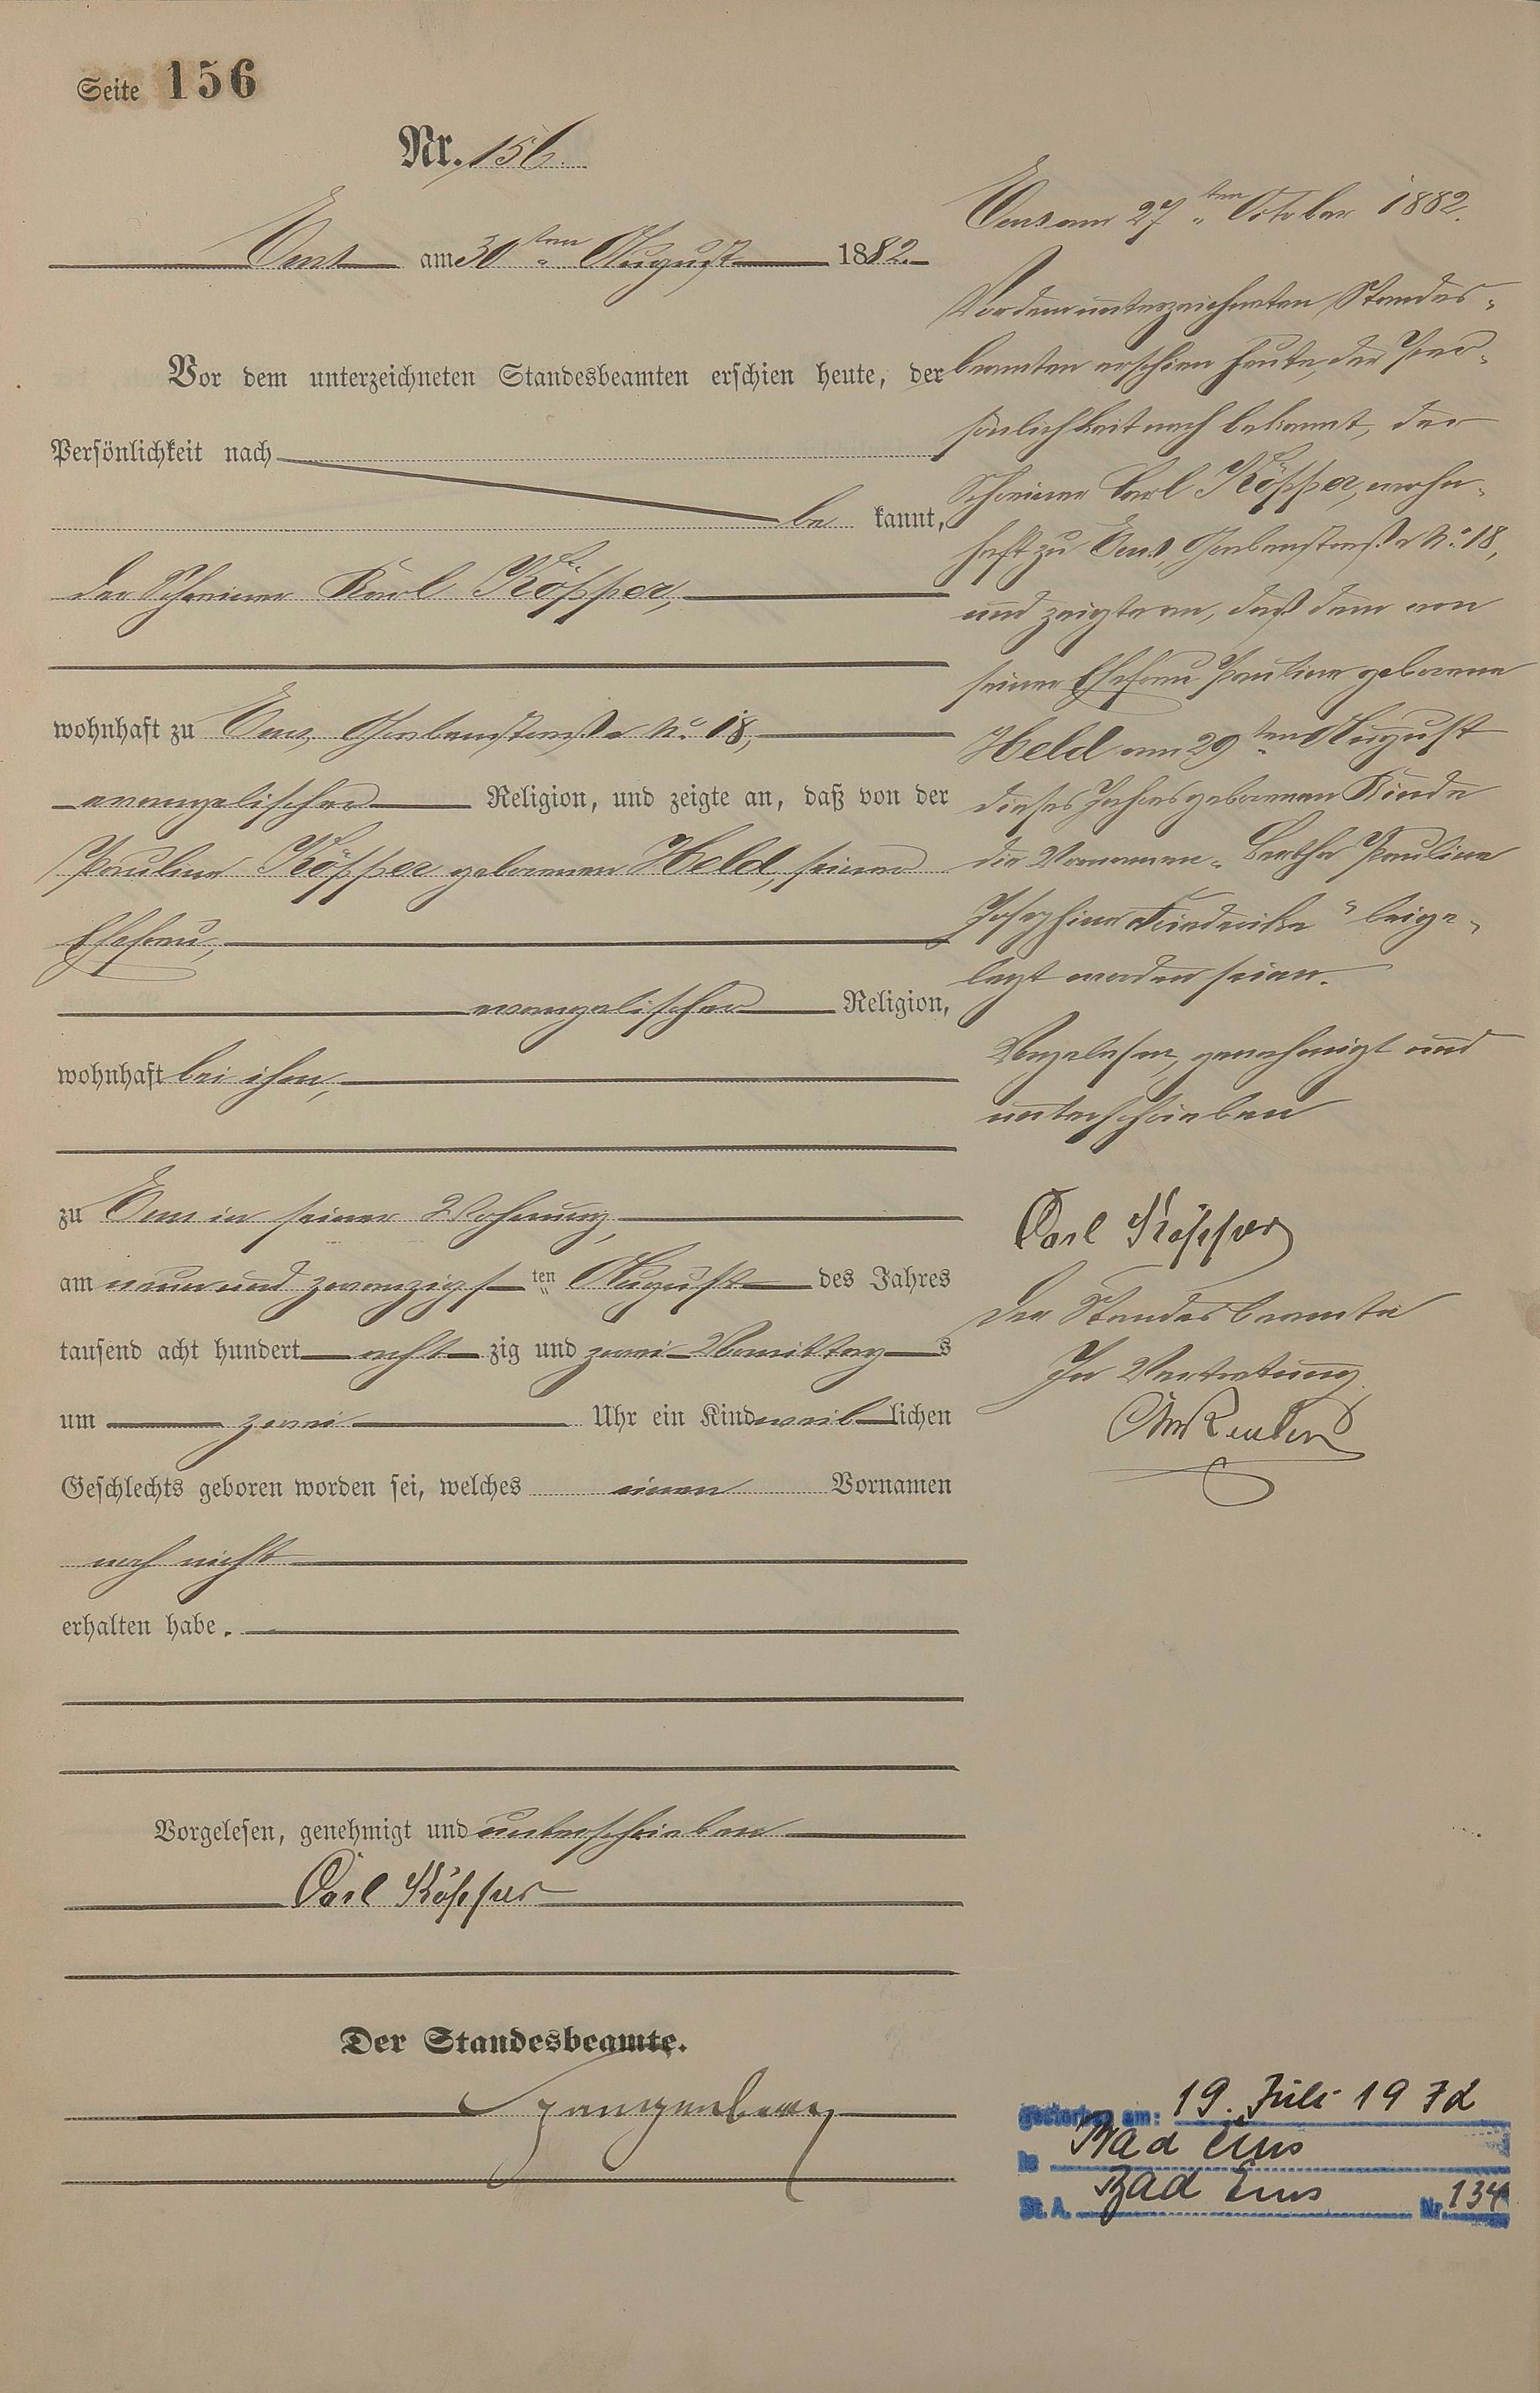 Seite 156
Nr. 156.
Ems am 30ten August 1882.
Vor dem unterzeichneten Standesbeamten erschien heute, der
Persönlichkeit nach
be kannt,
der Schreiner Karl Köpper,
wohnhaft zu Ems, Grabenstraße No. 18,
evangelischer Religion, und zeigte an, daß von der
Pauline Köpper geborenen Held, seiner
Ehefrau,
evangelischer Religion,
wohnhaft bei ihm,
zu Ems in seiner Wohnung,
am neun und zwanzigsten August des Jahres
tausend acht hundert acht zig und zwei Vormittags
um zwei Uhr ein Kind weiblichen
Geschlechts geboren worden sei, welches einen Vornamen
noch nicht
erhalten habe.
Vorgelesen, genehmigt und unterschrieben
Carl Köpper
Der Standesbeamte.
Spangenberg
Ems am 27ten October 1882.
Vor dem unterzeichneten Standes-
beamten erschien heute, der Per-
sönlichkeit nach bekannt, der
Schreiner Carl Köpper, wohn-
haft zu Ems, Grabenstraße No. 18,
und zeigte an, daß dem von
seiner Ehefrau Pauline geborene
Held am 29ten August
dieses Jahres geborenen Kinde
die Vornamen „Bertha Pauline
Josephine Friederike“ beige-
legt worden seien.
Vorgelesen, genehmigt und
unterschrieben
Carl Köpper
Der Standesbeamte
In Vertretung
gestorben am: 19. Juli 1972
in Bad Ems
St. A. Bad Ems Nr. 134